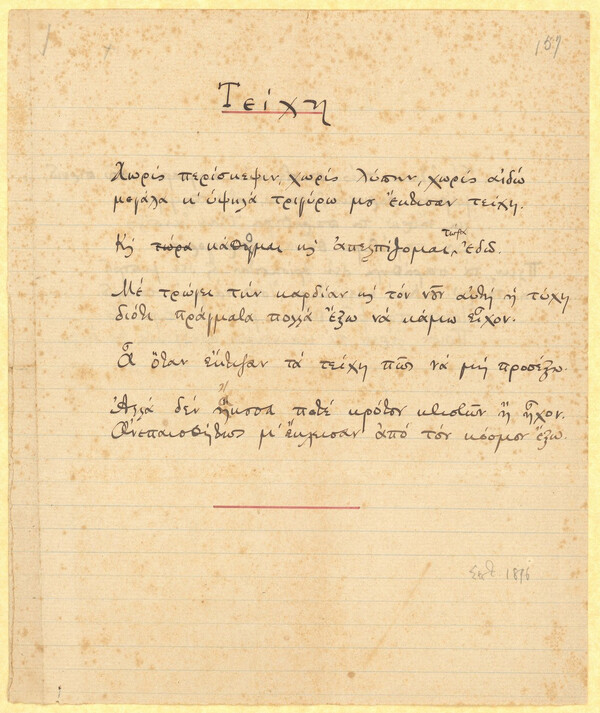 157
Τείχη
Χωρίς περίσκεψιν, χωρίς λύπην, χωρίς αἰδώ
μεγάλα κ' ὑψηλά τριγύρω μου ἔκτισαν τείχη.
Καί τώρα κάθημαι καί ἀπελπίζομαι τώρα ἐδώ.
Μέ τρώγει τήν καρδίαν καί τόν νοῦν αὐτή ἡ τύχη
διότι πράγματα πολλά ἔξω νά κάμω εἶχον.
Ἆ ὅταν ἔκτιζαν τά τείχη πῶς νά μή προσέξω.
Ἀλλά δέν ἤκουσα ποτέ κρότον κτιστῶν ἤ ἦχον.
Ἀνεπαισθήτως μ' ἔκλεισαν ἀπό τόν κόσμον ἔξω.
1896